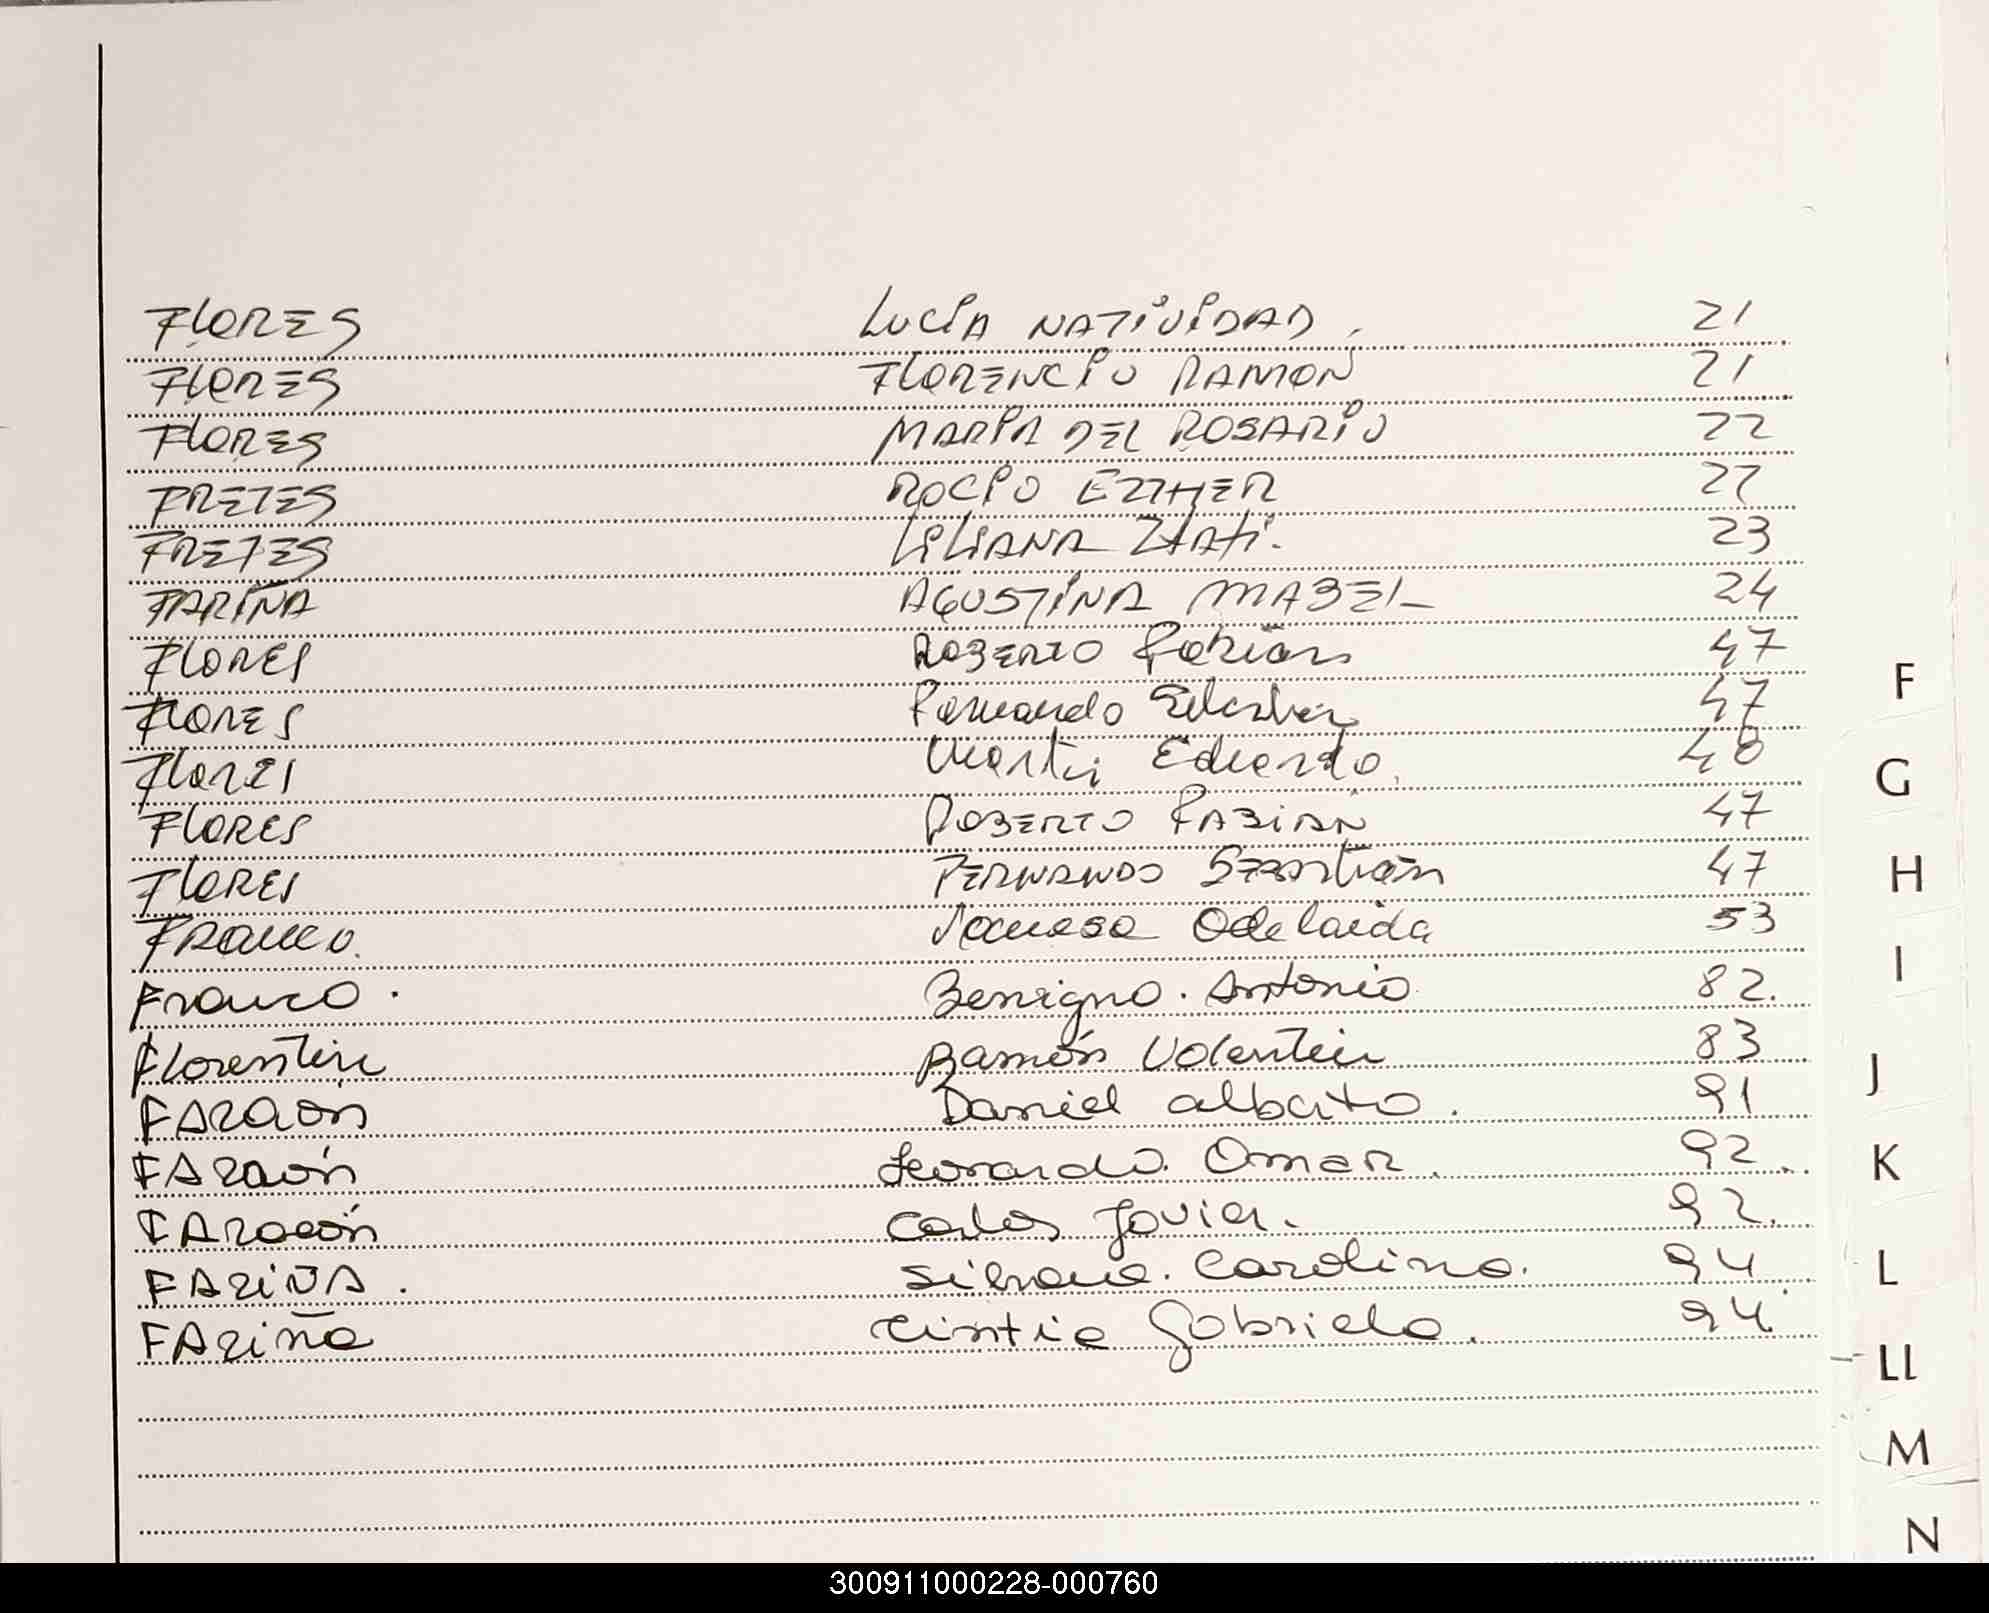 FLORES LUCÍA NATIVIDAD. 21
FLORES FLORENCIO RAMON 21
FLORES MARÍA DEL ROSARIO 22
FRETES ROCÍO ESTHER 22
FRETES LILIANA 23
FARIÑA AGUSTINA MABEL 24
FLORES ROBERTO Fabián 47
FLORES Fernando 47
FLORES Martin Eduardo. 48
FLORES ROBERTO FABIAN 47
FLORES FERNANDO SEBastián 47
FRANCO. Adelaida 53
Franco. Benigno. Antonio 82.
Florentin Ramón Valentin 83
FARAon Daniel alberto. 91
FAraón Leonardo. Omar. 92.
FAraón Carlos Javier. 92.
FARIÑA. Silvana. Carolina. 94
FAriña Cintia Gabriela. 94
F
G
H
I
J
K
L
LL
M
N
300911000228-000760